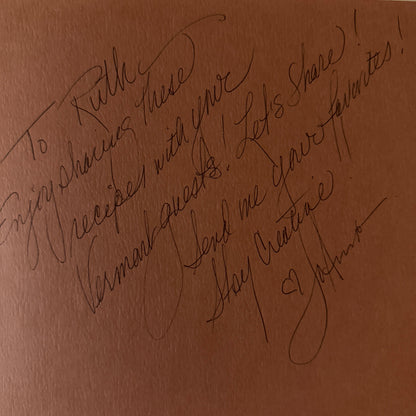 To Ruth,
Enjoy sharing these
recipes with your
Vermont guests! Let's Share!
Send me your favorites!
Stay Creative
♡